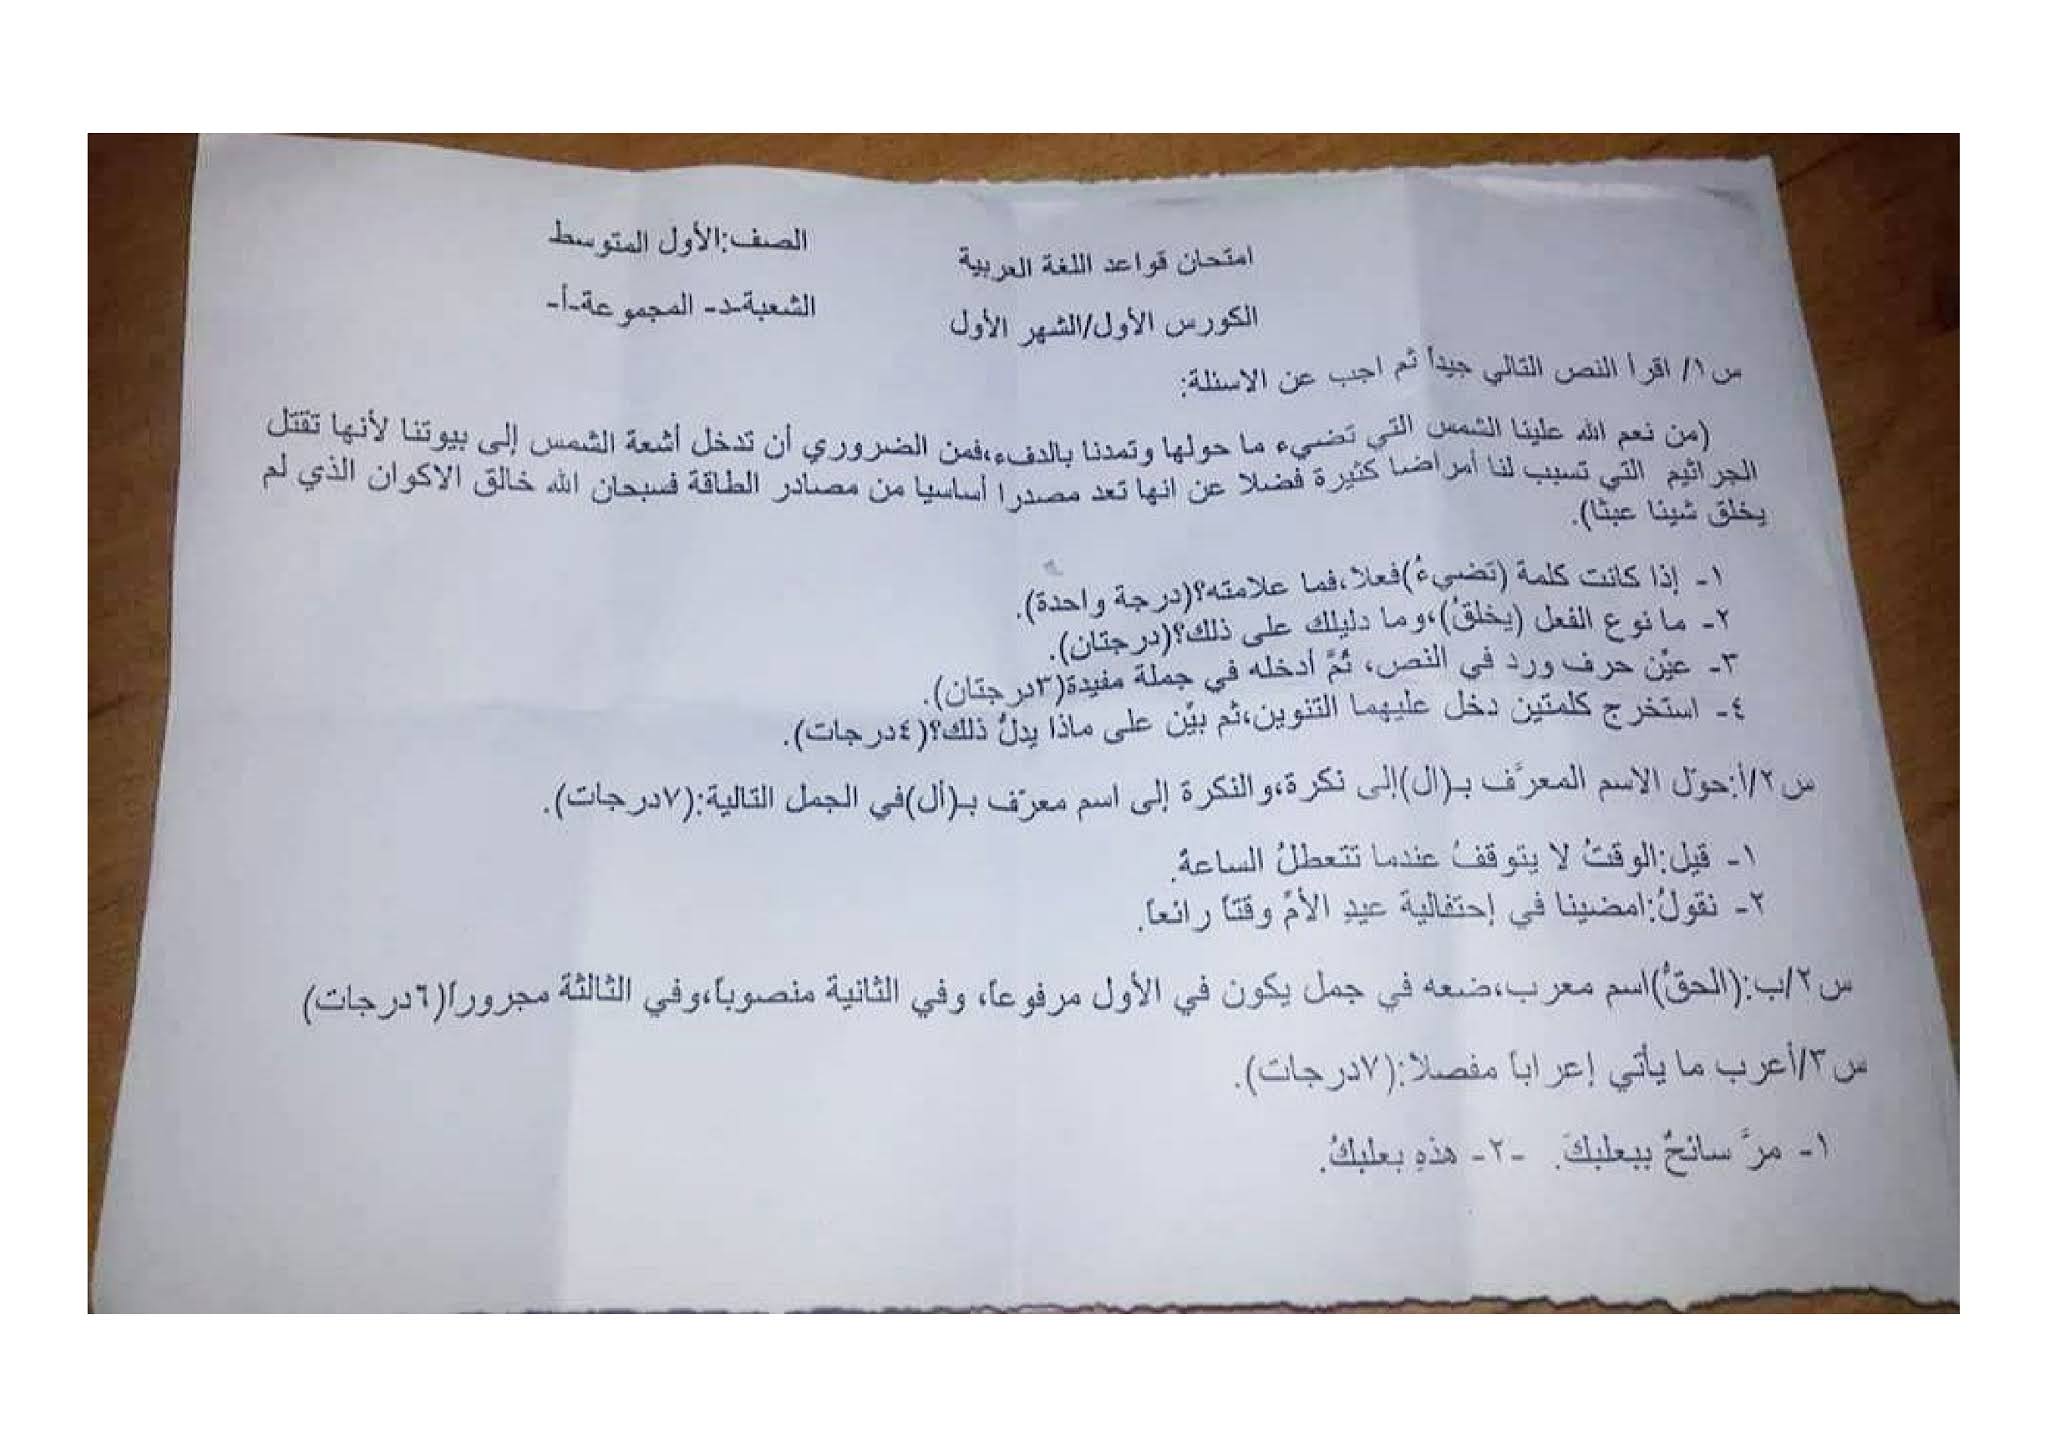 امتحان قواعد اللغة العربية
الصف:الأول المتوسط
الكورس الأول/الشهر الأول
الشعبة-د- المجموعة-أ-
س١/ اقرأ النص التالي جيداً ثم اجب عن الاسئلة:
(من نعم الله علينا الشمس التي تضيء ما حولها وتمدنا بالدفء،فمن الضروري أن تدخل أشعة الشمس إلى بيوتنا لأنها تقتل
الجراثيم التي تسبب لنا أمراضا كثيرة فضلا عن انها تعد مصدرا أساسيا من مصادر الطاقة فسبحان الله خالق الاكوان الذي لم
يخلق شيئا عبثا).
١- إذا كانت كلمة (تضيءُ)فعلا،فما علامته؟(درجة واحدة).
٢- ما نوع الفعل (يخلقُ)،وما دليلك على ذلك؟(درجتان).
٣- عيّن حرف ورد في النص، ثمَّ أدخله في جملة مفيدة(٣درجتان).
٤- استخرج كلمتين دخل عليهما التنوين،ثم بيّن على ماذا يدلُّ ذلك؟(٤درجات).
س٢/أ:حوّل الاسم المعرَّف بـ(ال)إلى نكرة،والنكرة إلى اسم معرّف بـ(أل)في الجمل التالية:(٧درجات).
١- قيل:الوقتُ لا يتوقفُ عندما تتعطلُ الساعةُ.
٢- نقولُ:امضينا في إحتفالية عيدِ الأمِّ وقتاً رائعاً.
س٢/ب:(الحقُّ)اسم معرب،ضعه في جمل يكون في الأول مرفوعاً، وفي الثانية منصوباً،وفي الثالثة مجروراً(٦درجات)
س٣/أعرب ما يأتي إعراباً مفصلا:(٧درجات).
١- مرَّ سائحٌ ببعلبكَ. -٢- هذهِ بعلبكُ.